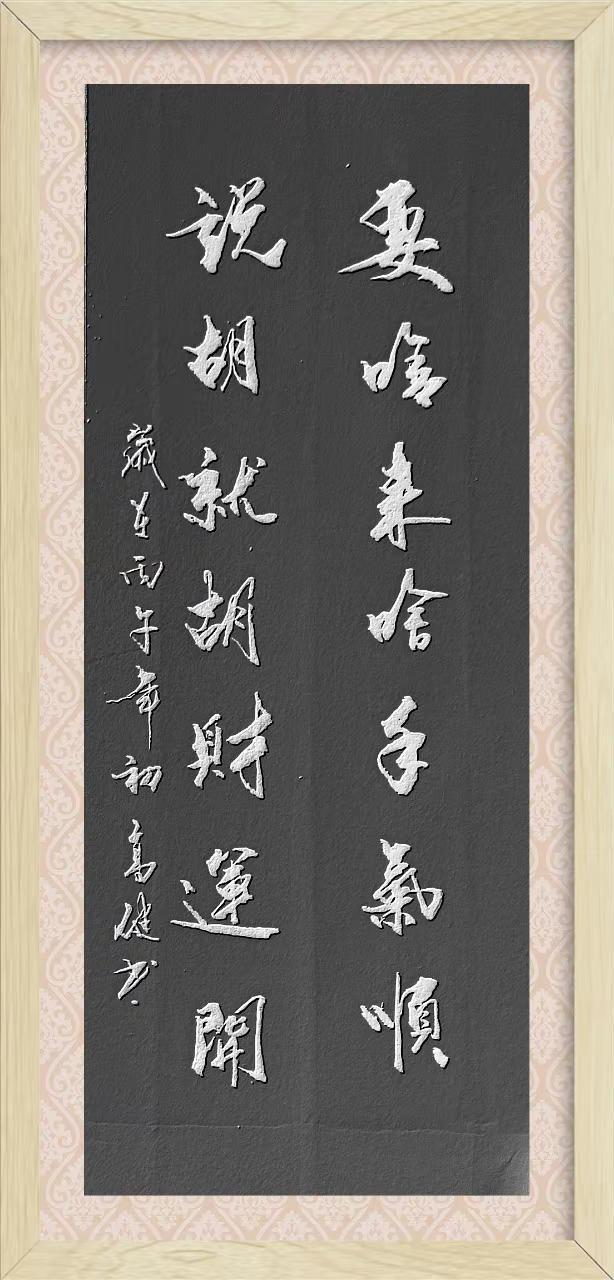 要啥来啥手氣順
说胡就胡財運開
歲在丙午年初高健书